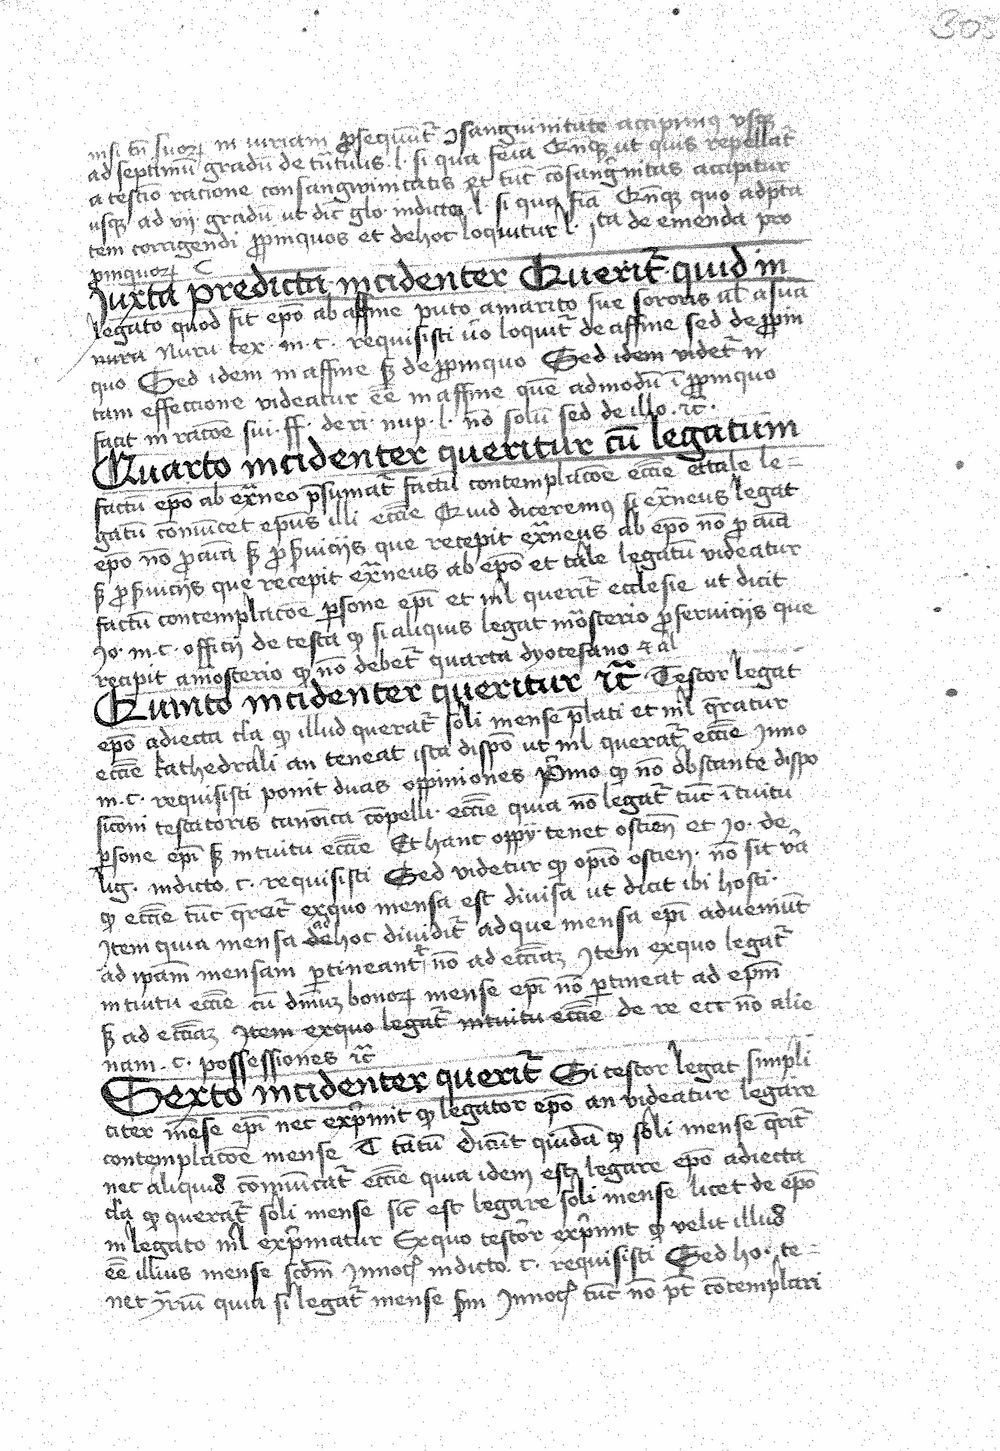 305
nisi bn̄ suoꝝ in iuriam ꝓsequūt᷑ ꝯsanguinitate accipimꝰ vsqꝫ
ad septimū gradū de tutulis l. si qua feīa Gn̄qꝫ ut quis repellat᷑
a testīo racione consangwinitatis et tūc cōsanḡnitas accipitur
usqꝫ ad vij gradū ut dic̄ glo indicta l. si qua fīa Gn̄qꝫ quo adp̄ta
tem corrigendi ꝓpinquos et dehoc loquitur l. Ita de emenda pro
pinquoꝝ C
Juxta predicta incidenter Querit᷑ quid in
legato quod fit ep̄o ab affine puto amarito sue sororis al̄ a sua
nura Nuru tex. in. c. requisisti v̄o loquit᷑ de affine sed de ꝓpin
quo Sed idem in affine sꝫ de ꝓpinquo Sed idem videt᷑ ī
tam effeccione videatur ēē in affine quē admodū ī ꝓpinquo
facit in racōe sui. ff. de ri. nup. l. nō solū sed de illo. ꝛc̄.
Quarto incidenter queritur cū legatum
factū ep̄o ab ex̄neo p̄sumat᷑ factū contemplacōe ecc̄ie et tale le=
gatū cōmūicet ep̄us illi ecc̄ie Quid diceremꝰ si ex̄neus legat
ep̄o nō ꝓ cūā sꝫ ꝓ s̄uicijs que recepit ex̄neus ab ep̄o nō ꝓ cūā
sꝫ ꝓ s̄uicijs que recepit ex̄neus ab ep̄o et tale legatū videatur
factū contemplacōe ꝑsone ep̄i et nl̄ querit᷑ ecclesie ut dicit
Jo. in. c. officij de testā ꝙ si aliquis legat mōsterio ꝓ seruicijs que
recipit amōsterio ꝙ nō debet᷑ quarta dyocesano ⁊ al̄
Quinto incidenter queritur ꝛc̄ Testor legat
ep̄o adiecta cl̄a ꝙ illud querat᷑ soli mense p̄lati et nl̄ q̄ratur
ecc̄ie kathedrali an teneat ista dispō ut nl̄ querat᷑ ecc̄ie Inno
in. c. requisisti ponit duas oppiniones P̄mo ꝙ nō obstante dispo
sicōni testatoris canōica cōpelli. ecc̄ie quia nō legat᷑ tūc ītuitu
ꝑsone ep̄i sꝫ intuitu ecc̄ie Et hanc oppī. tenet ostien̄ et Jo. de
lig. indicto. c. requisisti Sed videtur ꝙ opīo ostien̄. nō sit v̄a
ꝙ ecc̄ie tūc q̄rat᷑ exquo mensa est diuisa ut dicit ibi hosti.
Item quia mensa ad hoc diuidit᷑ ad que mensa ep̄i adueniūt
ad ip̄am mensam ꝑtineant᷑ nō ad ecc̄iaꝫ Item exquo legat᷑
intuitu ecc̄ie cū dn̄iuꝫ bonoꝝ mense ep̄i nō ꝑtineat ad ep̄m
sꝫ ad ecc̄iaꝫ Item exquo legat᷑ intuitu ecc̄ie de re ecc̄ nō alie
nam. c. possessiones ꝛc̄
Sexto incidenter querit᷑ Si testor legat simpli
citer mēse ep̄i nec exp̄mit ꝙ legator ep̄o an videatur legare
contemplacōe mense T tātū Dicūt quidā ꝙ soli mense q̄rit᷑
nec aliquid cōmūicat᷑ ecc̄ie quia idem estꝫ legare ep̄o adiecta
cl̄a ꝙ querat᷑ soli mense sic̄ est legare soli mense licet de ep̄o
in legato nl̄ exp̄matur Exquo testor exp̄mit ꝙ velit illud
ēē illius mense scd̄m Innoc̄ indicto. c. requisisti Sed ho. te=
net ꝯ̄riū quia si legat᷑ mense s̄m Innoc̄ tūc nō pt̄ cōtemplari